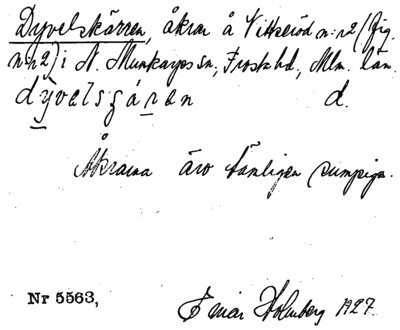 Dyvelskärren, åkrar å Vittseröd n:r 2 (fig.
n:r 2) i N. Munkarps sn., Frosta hd., Mlm. län.
dyvelsgáren d.
Åkrarna äro tämligen sumpiga.
Nr 5563, Einar Holmberg 1927.